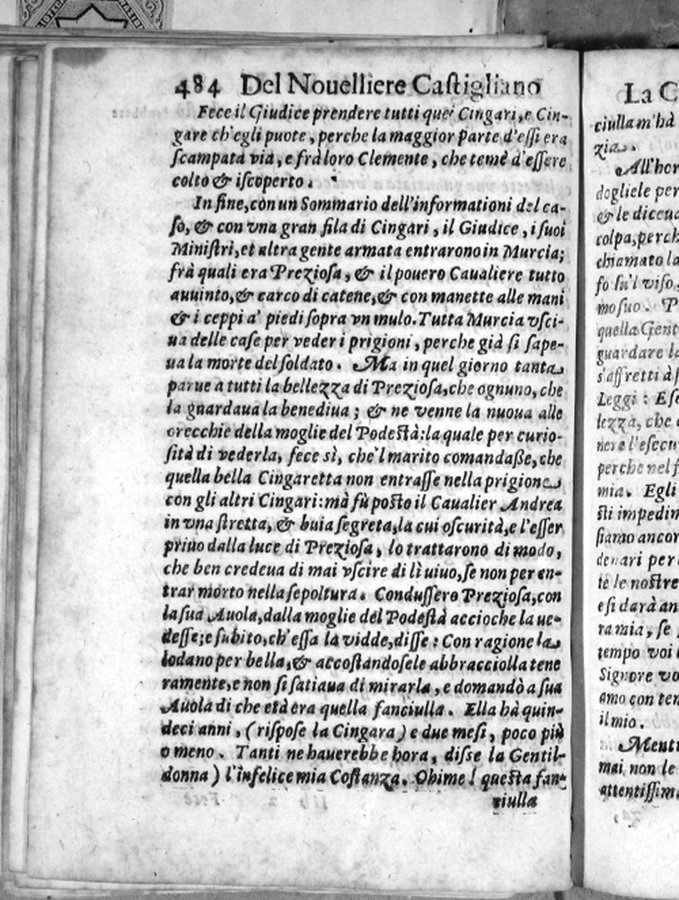 484 Del Nouelliere Castigliano
Fece il Giudice prendere tutti que' Cingari, e Cin-
gare ch'egli puote, perche la maggior parte d'essi era
scampata via, e frà loro Clemente, che temè d'essere
colto & iscoperto.
In fine, con un Sommario dell'informationi del ca-
so, & con vna gran fila di Cingari, il Giudice, i suoi
Ministri, et altra gente armata entrarono in Murcia;
frà quali era Preziosa, & il pouero Caualiere tutto
auuinto, & carco di catene, & con manette alle mani
& i ceppi a' piedi sopra vn mulo. Tutta Murcia vsci-
ua delle case per veder i prigioni, perche già si sape-
ua la morte del soldato. Ma in quel giorno tanta
parue à tutti la bellezza di Preziosa, che ognuno, che
la guardaua la benediua; & ne venne la nuoua alle
orecchie della moglie del Podestà: la quale per curio-
sità di vederla, fece sì, che'l marito comandasse, che
quella bella Cingaretta non entrasse nella prigione
con gli altri Cingari: mà fù posto il Caualier Andrea
in vna stretta, & buia segreta, la cui oscurità, e l'esser
priuo dalla luce di Preziosa, lo trattarono di modo,
che ben credeua di mai vscire di lì uiuo, se non per en-
trar morto nella sepoltura. Condussero Preziosa, con
la sua Auola, dalla moglie del Podestà accioche la ue-
desse; e subito, ch'essa la vidde, disse: Con ragione la
lodano per bella, & accostandosele abbracciolla tene
ramente, e non si satiaua di mirarla, e domandò a sua
Auola di che età era quella fanciulla. Ella hà quin-
deci anni, (rispose la Cingara) e due mesi, poco più
o meno. Tanti ne hauerebbe hora, disse la Gentil-
donna) l'infelice mia Costanza. Ohime! questa fan-
ciulla
La C
ciulla m'hà
zia.
All'hor
dogliele per
& le diceua
colpa, perch
chiamato la
fo sù'l viso,
mo suo. P
quella Gent
guardare la
s'affretti à f
Leggi: Ese
lezza, che
nera l'esecu
perche nel f
mia. Egli
sti impedim
siamo ancor
denari per
te le nostre
e si darà an
ra mia, se
tempo voi
Signore vo
amo con ten
il mio.
Mentr
mai non le
attentissima